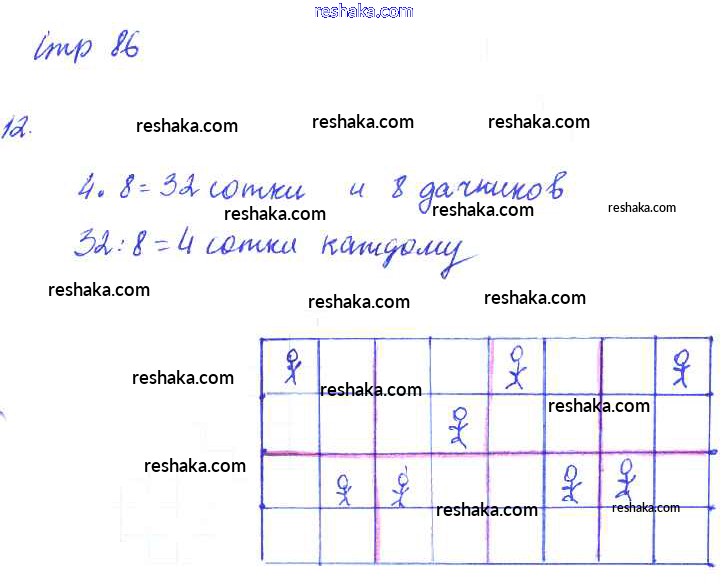 reshaka.com
стр 86
12.
reshaka.com reshaka.com reshaka.com
4 · 8 = 32 сотки и 8 дачников
reshaka.com reshaka.com reshaka.com
32 : 8 = 4 сотки каждому
reshaka.com reshaka.com reshaka.com
reshaka.com reshaka.com reshaka.com
reshaka.com reshaka.com reshaka.com